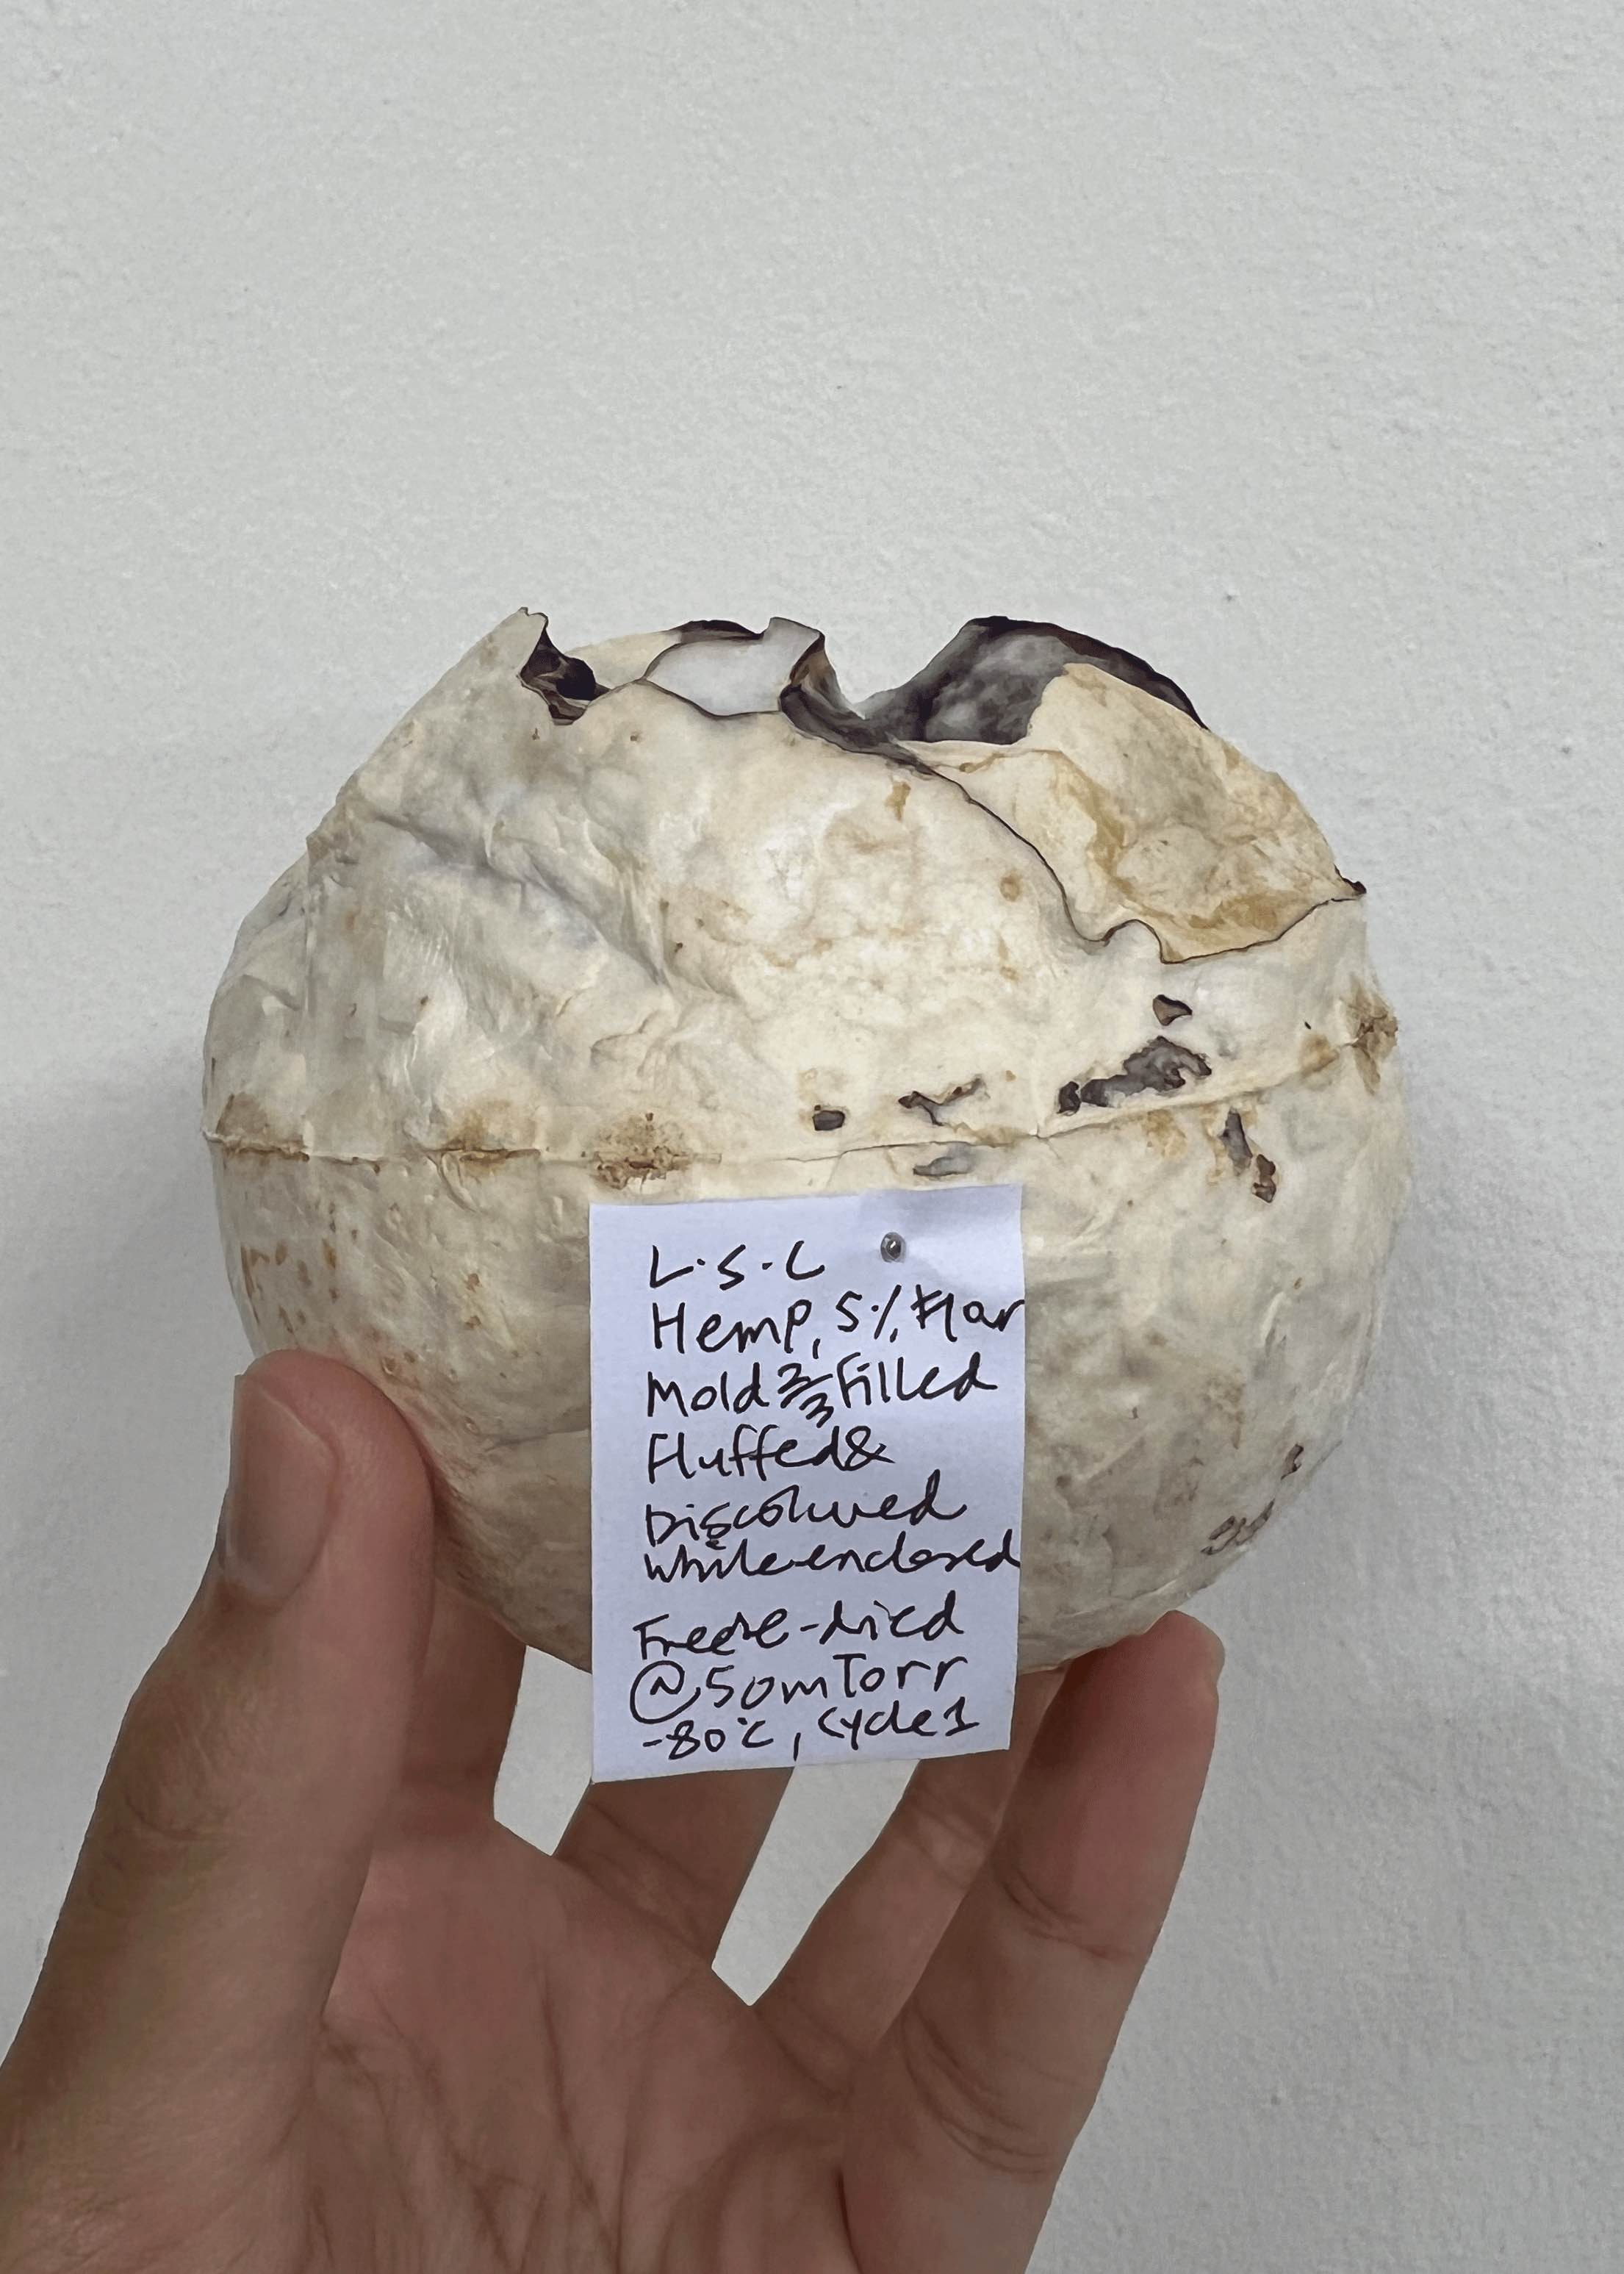 L.S.C
Hemp, 5%, Flour
Mold 2/3 Filled
Fluffed &
Discoloured
while enclosed
Freeze-dried
@50mTorr
-80°C, Cycle 1